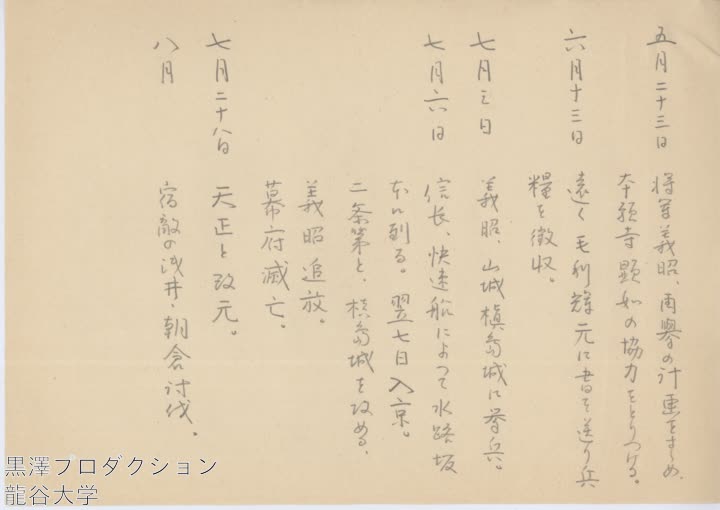 五月二十三日 将軍義昭、再挙の計画をすゝめ、
本願寺顕如の協力をとりつける。
六月十三日 遠く毛利輝元に書を送り兵
糧を徴収。
七月三日 義昭、山城槙島城に挙兵。
七月六日 信長、快速船によつて水路坂
本に到る。翌七日入京。
二条第と、槙島城を攻める、
義昭追放。
幕府滅亡。
七月二十八日 天正と改元。
八月 宿敵の浅井、朝倉討伐。
黒澤プロダクション
龍谷大学